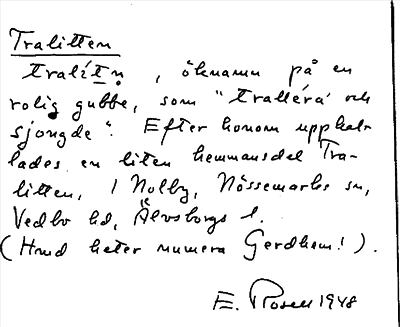 Tralitten
tralítṇ, öknamn på en
rolig gubbe, som "trallera' och
sjongde". Efter honom uppkal-
lades en liten hemmansdel Tra-
litten, i Nolby, Nössemarks sn,
Vedbo hd, Älvsborgs l.
(Hmd heter numera Gerdhem!).
E. Rosell 1948